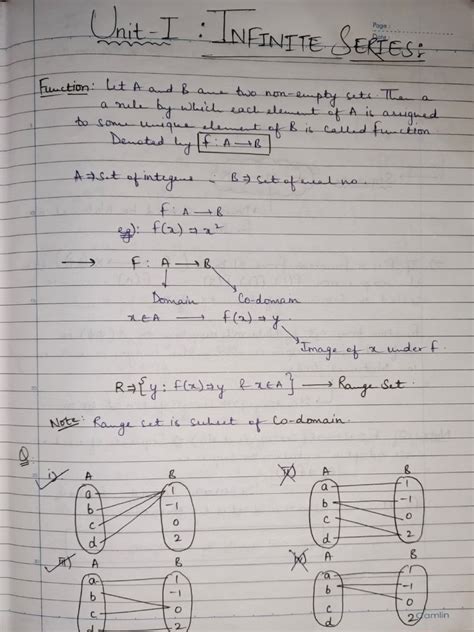 Page:
Date:
Unit-I : INFINITE SERIES:
Function: Let A and B are two non-empty sets. Then a
a rule by which each element of A is assigned
to some unique element of B is called function
Denoted by f: A → B
A ⇒ Set of integers . B ⇒ Set of real no.
f: A → B
eg): f(x) ⇒ x²
→ F: A → B
Domain Co-domain
x∈A → f(x) ⇒ y
Image of x under f.
R ⇒ {y : f(x) ⇒ y & x∈A} → Range Set.
Note: Range set is subset of Co-domain.
Q.
i) A B
a 1
b -1
c 0
d 2
ii) A B
a 1
b -1
c 0
d 2
iii) A B
a 1
b -1
c 0
d 2
iv) A B
a 1
b -1
c 0
2
Camlin